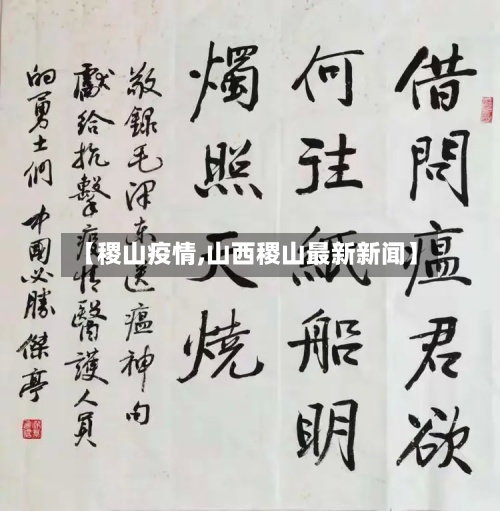 借問瘟君欲
何往紙船明
燭照天燒
敬録毛泽东送瘟神句
獻给抗擊疫情醫護人員
的勇士們 中國必勝 傑亭
【稷山疫情,山西稷山最新新闻】